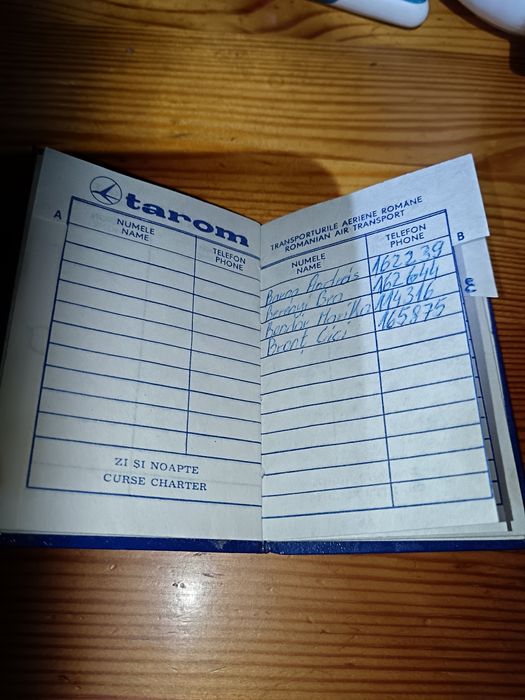 tarom
A
NUMELE
NAME
TELEFON
PHONE
ZI SI NOAPTE
CURSE CHARTER
TRANSPORTURILE AERIENE ROMÂNE
ROMANIAN AIR TRANSPORT
B
E
NUMELE
NAME
TELEFON
PHONE
András 162239
Ben 162644
Marika 114316
Cici 165875